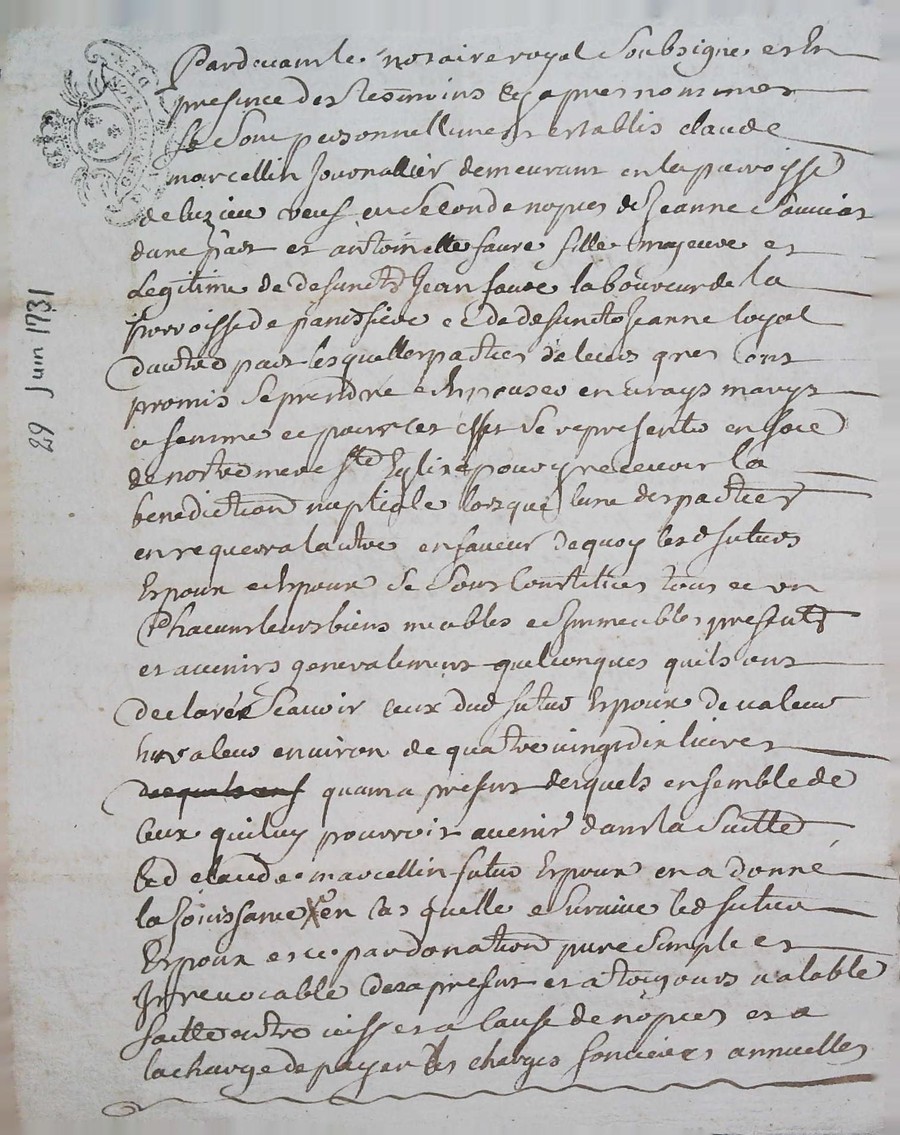 29 Juin 1731
Pardevant le notaire royal soubsigne et en
presence des tesmoins cy apres nommes
se sont personnellement establis claude
marcellin Journallier demeurant en la parroisse
de luzieu veuf en seconde nopces de Jeanne
dune part et antoinette faure fille majeure et
Legitime de defunctz Jean faure laboureur de la
parroisse de panissiere et de defuncte Jeanne loyal
dautre part lesquelles parties de leurs gres ont
promis se prendre et Espouser en vrays marys
et femme et pour cet effet se representer en face
de nostre mere Ste Eglise pour y recevoir la
benediction nuptiale lorsque lune des parties
en requerra lautre en faveur dequoy lesd futurs
Espoux et Espouze se sont Constitues tous et un
Chacuns leurs biens meubles et Immeubles presents
et avenirs generalement quelconques quils ont
declarés scavoir ceux dud futur Espoux de valeur
valeur environ de quatre vingt dix livres
quant a present desquels ensemble de
ceux quiluy pourroit avenir dans la suitte
led claude marcellin futur Espoux en a donné
la Jouissance en cas quelle e survive led futur
Espoux et ce par donation pure simple et
Irrevocable des a present et a toujours valable
faitte entre vifs et a cause de nopces et a
la charge de payer les charges foncieres annuelles